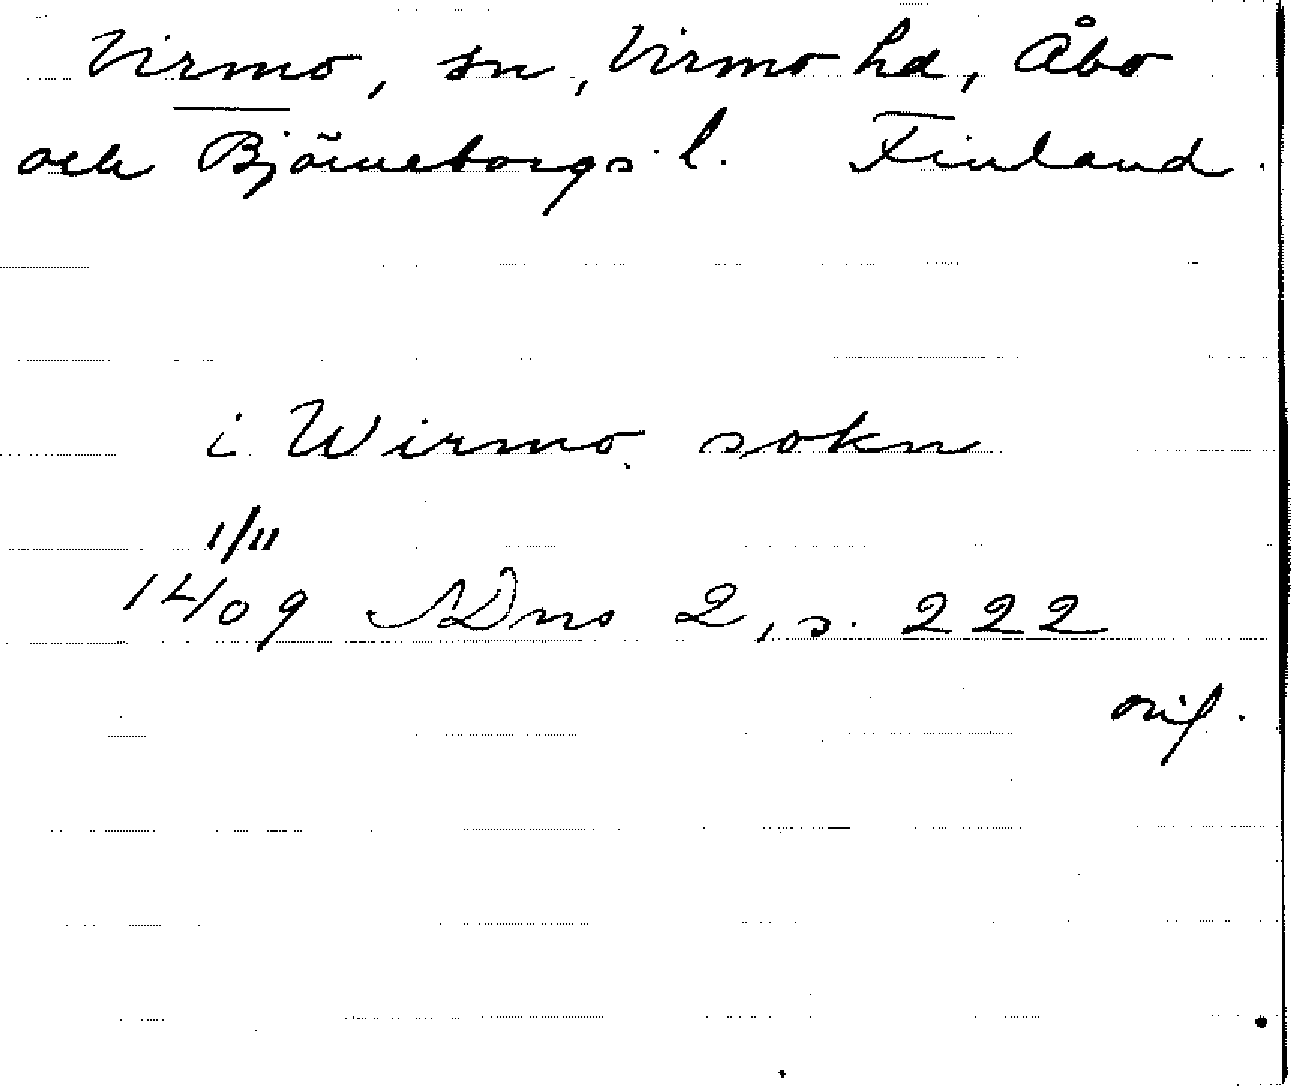 Virmo, sn, Virmo hd, Åbo
och Björneborgs l. Finland.
i Wirmo sokn
1/11
1409 SDns 2, s. 222
orig.